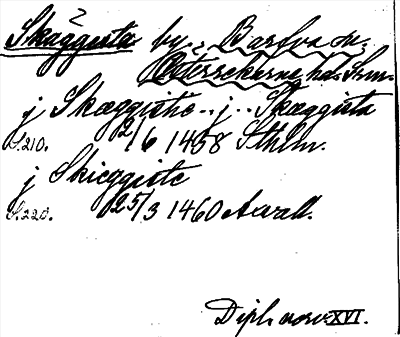 Skäggesta by, Barfva sn.
Österrekarne hd. Srm.
j Skæggisthe.. j.. Skæggista
S.210. 2/6 1458 Sthlm.
j Skieggiste
S.220. 25/3 1460
Dipl. norv. XVI.